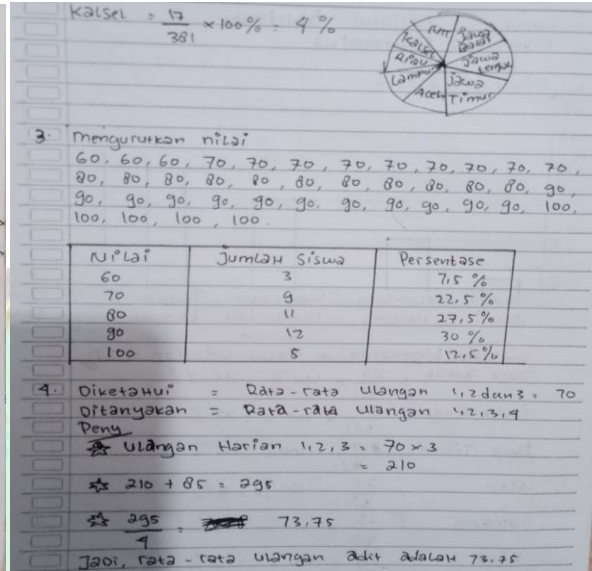 Kalsel = 17/381 × 100% = 4%
NTT
Jawa Barat
Jawa Tengah
Jawa Timur
Aceh
Lampu
Riau
Kalsel
3. Mengurutkan nilai
60, 60, 60, 70, 70, 70, 70, 70, 70, 70, 70, 70,
80, 80, 80, 80, 80, 80, 80, 80, 80, 80, 80, 90,
90, 90, 90, 90, 90, 90, 90, 90, 90, 90, 90, 100,
100, 100, 100, 100.
Nilai Jumlah Siswa Persentase
60 3 7,5 %
70 9 22,5 %
80 11 27,5 %
90 12 30 %
100 5 12,5 %
4. Diketahui = Rata-rata ulangan 1,2 dan 3 = 70
Ditanyakan = Rata-rata ulangan 1,2,3,4
Peny
☆ Ulangan Harian 1,2,3 = 70 × 3
= 210
☆ 210 + 85 = 295
☆ 295/4 = 73,75
Jadi, rata-rata ulangan adit adalah 73,75